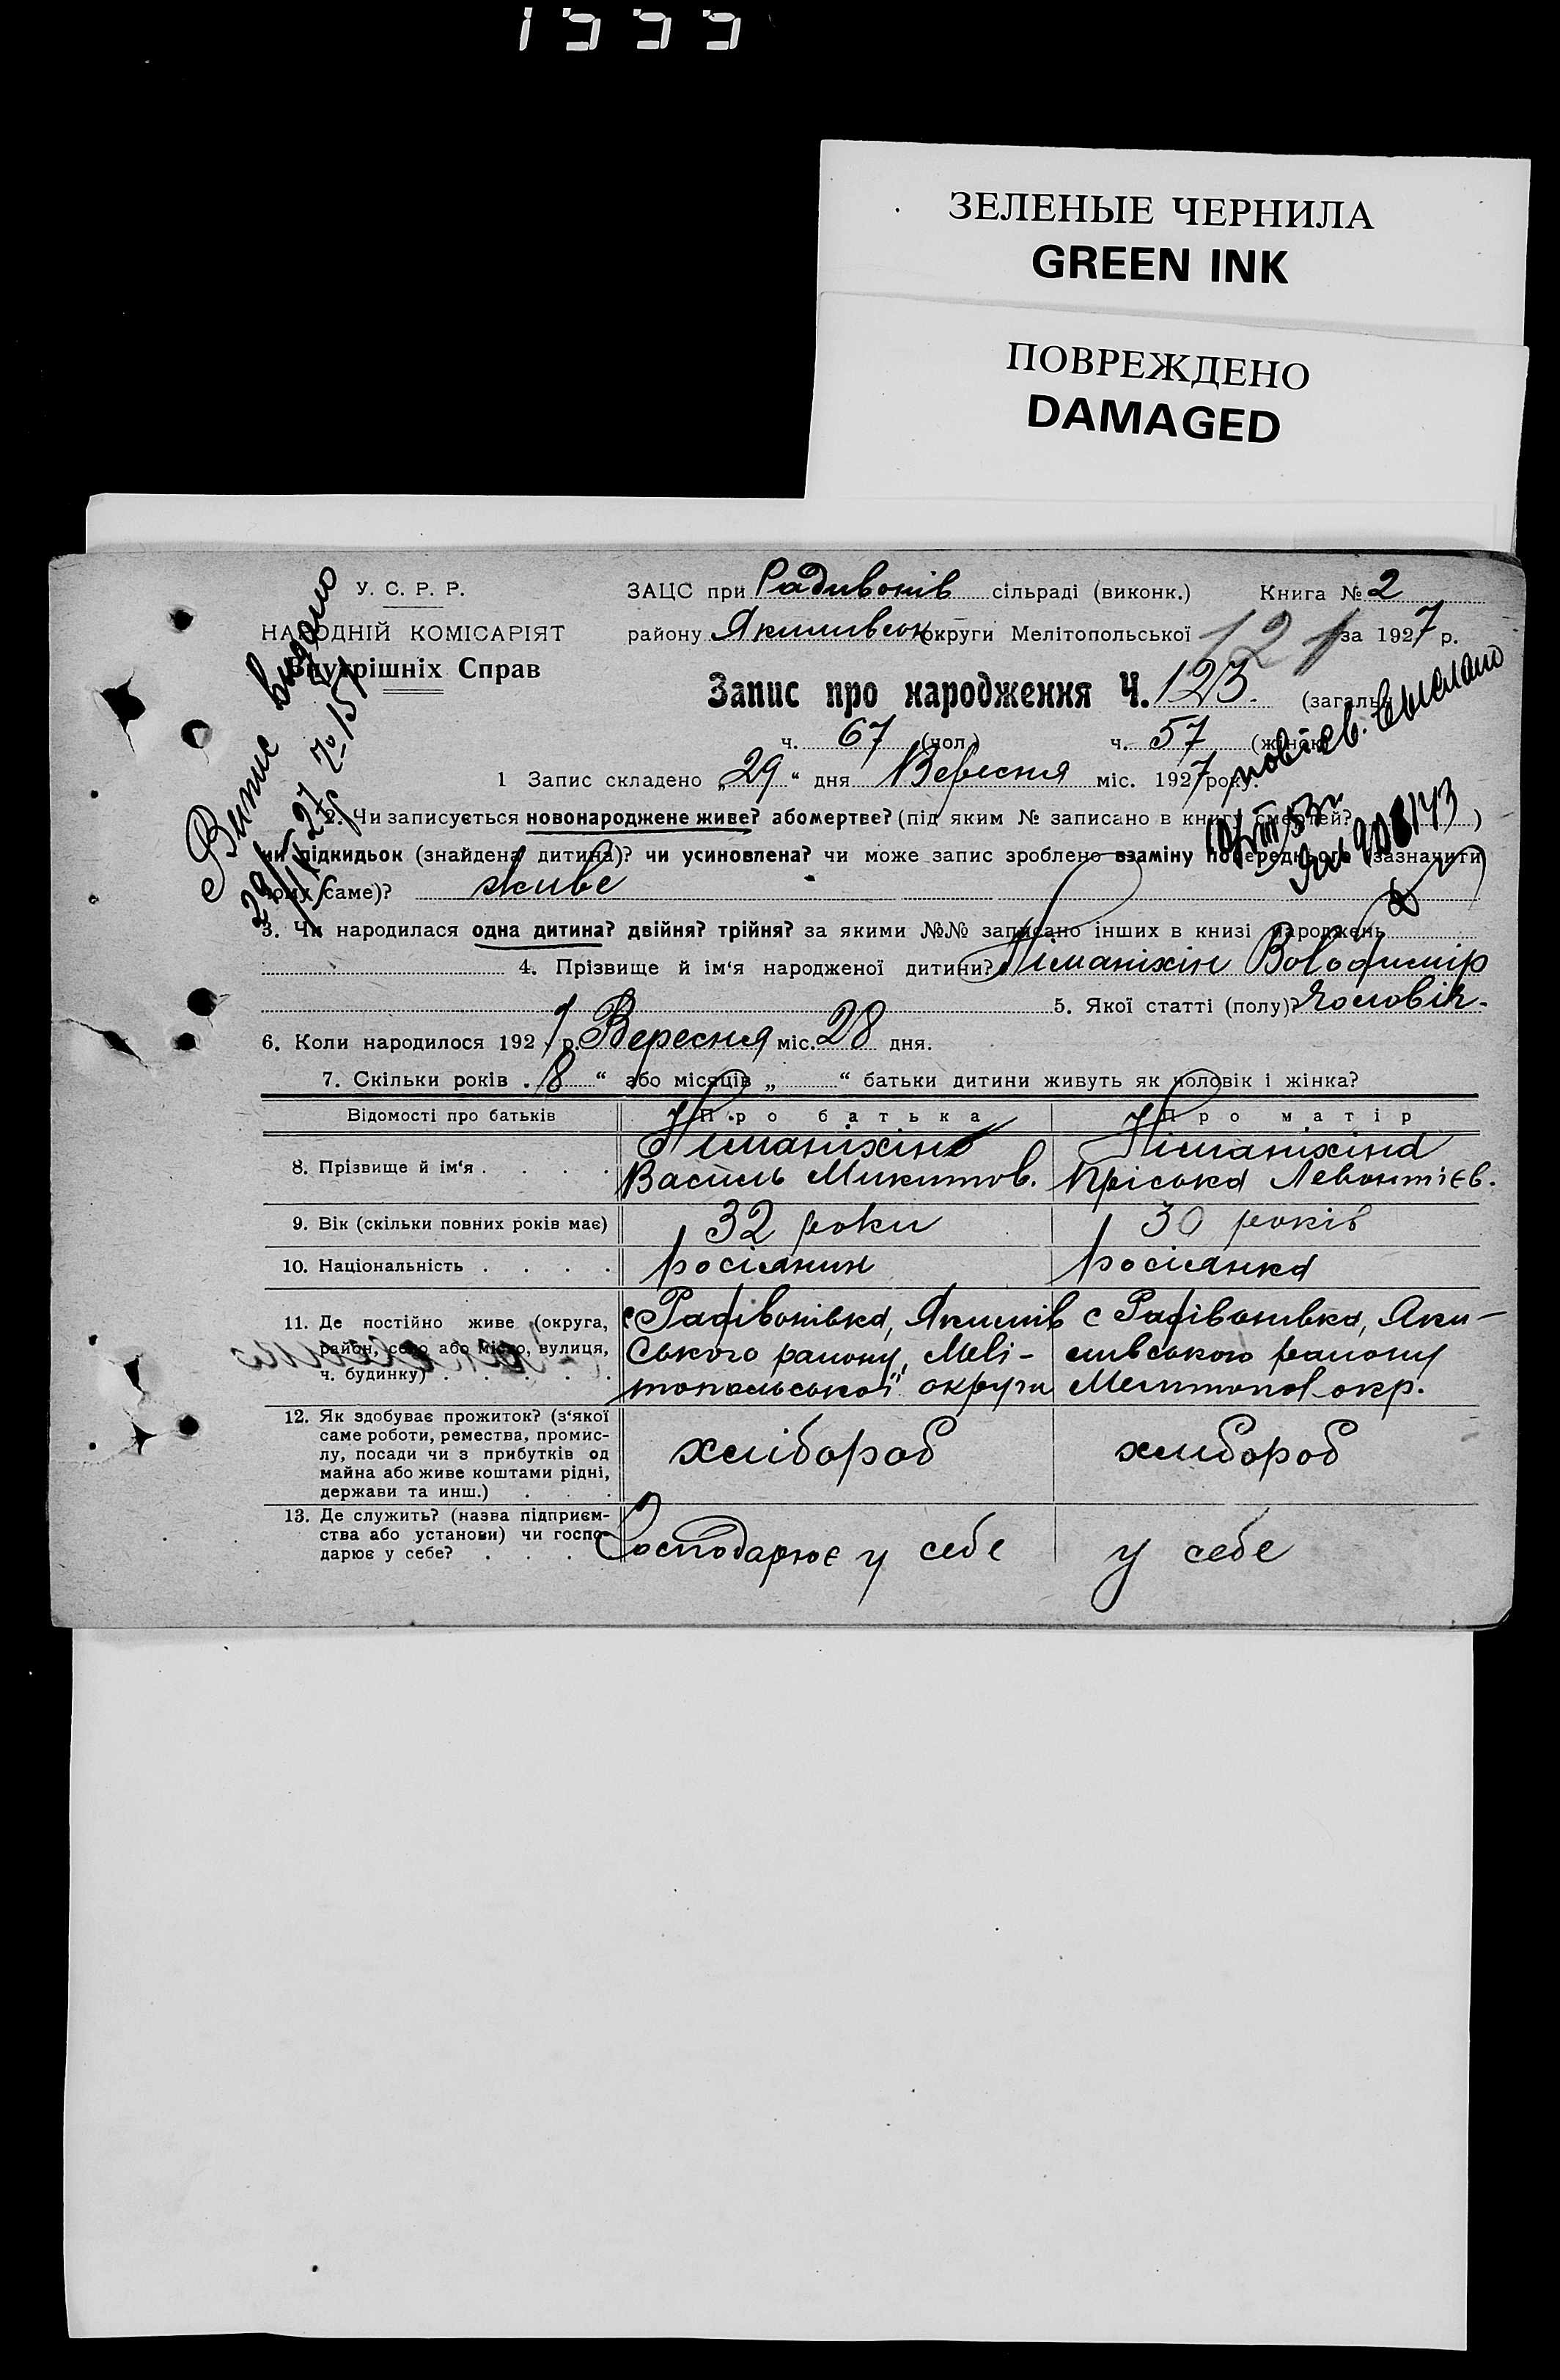 1999
ЗЕЛЕНЫЕ ЧЕРНИЛА
GREEN INK
ПОВРЕЖДЕНО
DAMAGED
У. С. Р. Р.
НАРОДНІЙ КОМІСАРІЯТ
Внутрішніх Справ
Випис видано
ЗАЦС при Радивонів сільраді (виконк.) Книга № 2
району Якимивськ округи Мелітопольської 121 за 1927 р.
Запис про народження Ч. 123. (загальн
ч. 67 (чол.) ч. 57 (жінок)
повт. св. выслано
1 Запис складено „29“ дня Вересня міс. 1927 року.
2. Чи записується новонароджене живе? або мертве? (під яким № записано в книгу смертей? )
чи підкидьок (знайдена дитина)? чи усиновлена? чи може запис зроблено взаміну попереднього (зазначити
чому саме)? живе
3. Чи народилася одна дитина? двійня? трійня? за якими №№ записано інших в книзі народжень
4. Прізвище й ім‘я народженої дитини? Піманіхін Володимір
5. Якої статті (полу)? Чоловік.
6. Коли народилося 1927 р. Вересня міс. 28 дня.
7. Скільки років „8“ або місяців „ “ батьки дитини живуть як чоловік і жінка?
Відомості про батьків Про батька Про матір
8. Прізвище й ім‘я . . . . Піманіхін Василь Микитов. Піманіхіна Пріська Левонтієв.
9. Вік (скільки повних років має) 32 роки 30 років
10. Національність . . . . росіянин росіянка
11. Де постійно живе (округа, район, село або місто, вулиця, ч. будинку) . . . . .
с Радівонівка, Якимів
ського району, Мелі-
топольської округи
с Радівонивка, Яки-
мивського району
Мелитопол окр.
12. Як здобуває прожиток? (з‘якої
саме роботи, ремества, промис-
лу, посади чи з прибутків од
майна або живе коштами рідні,
держави та инш.) . . .
хлібороб хлибороб
13. Де служить? (назва підприєм-
ства або установи) чи госпо-
дарює у себе? . . .
Господарює у себе у себе